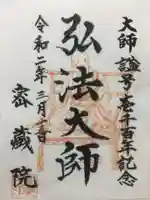 大師諡号壱千百年記念
弘法大師
令和二年三月吉日
密蔵院